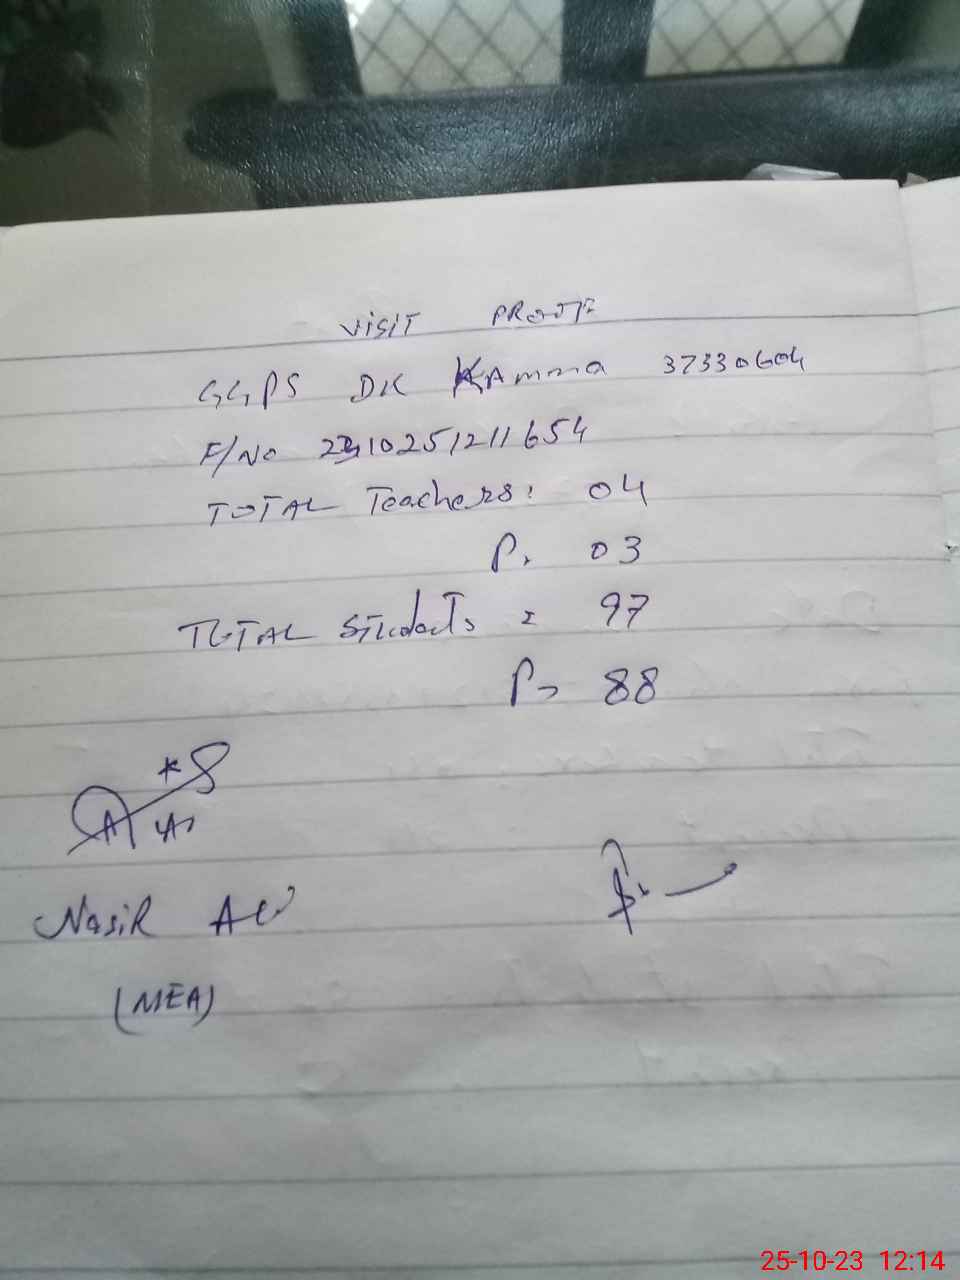 VISIT PROOF
GGPS DK KAmma 37330604
F/NO 2310251211654
TOTAL Teachers: 04
P. 03
TOTAL Students = 97
P = 88
Nasir Ali
(MEA)
25-10-23 12:14